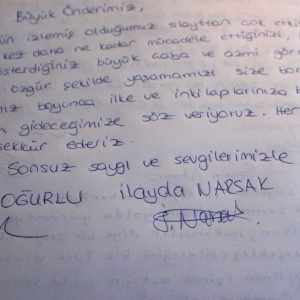 Büyük Önderimiz,
ün izlemiş olduğumuz slayttan çok etki
kez daha ne kadar mücadele ettiğinizi,
österdiğiniz büyük çaba ve azmi gör
özgür şekilde yaşamamızı size bor
ız boyunca ilke ve inkılaplarınıza b
n gideceğimize söz veriyoruz. Her
ekkür ederiz.
Sonsuz saygı ve sevgilerimizle
OĞURLU ilayda NARSAK